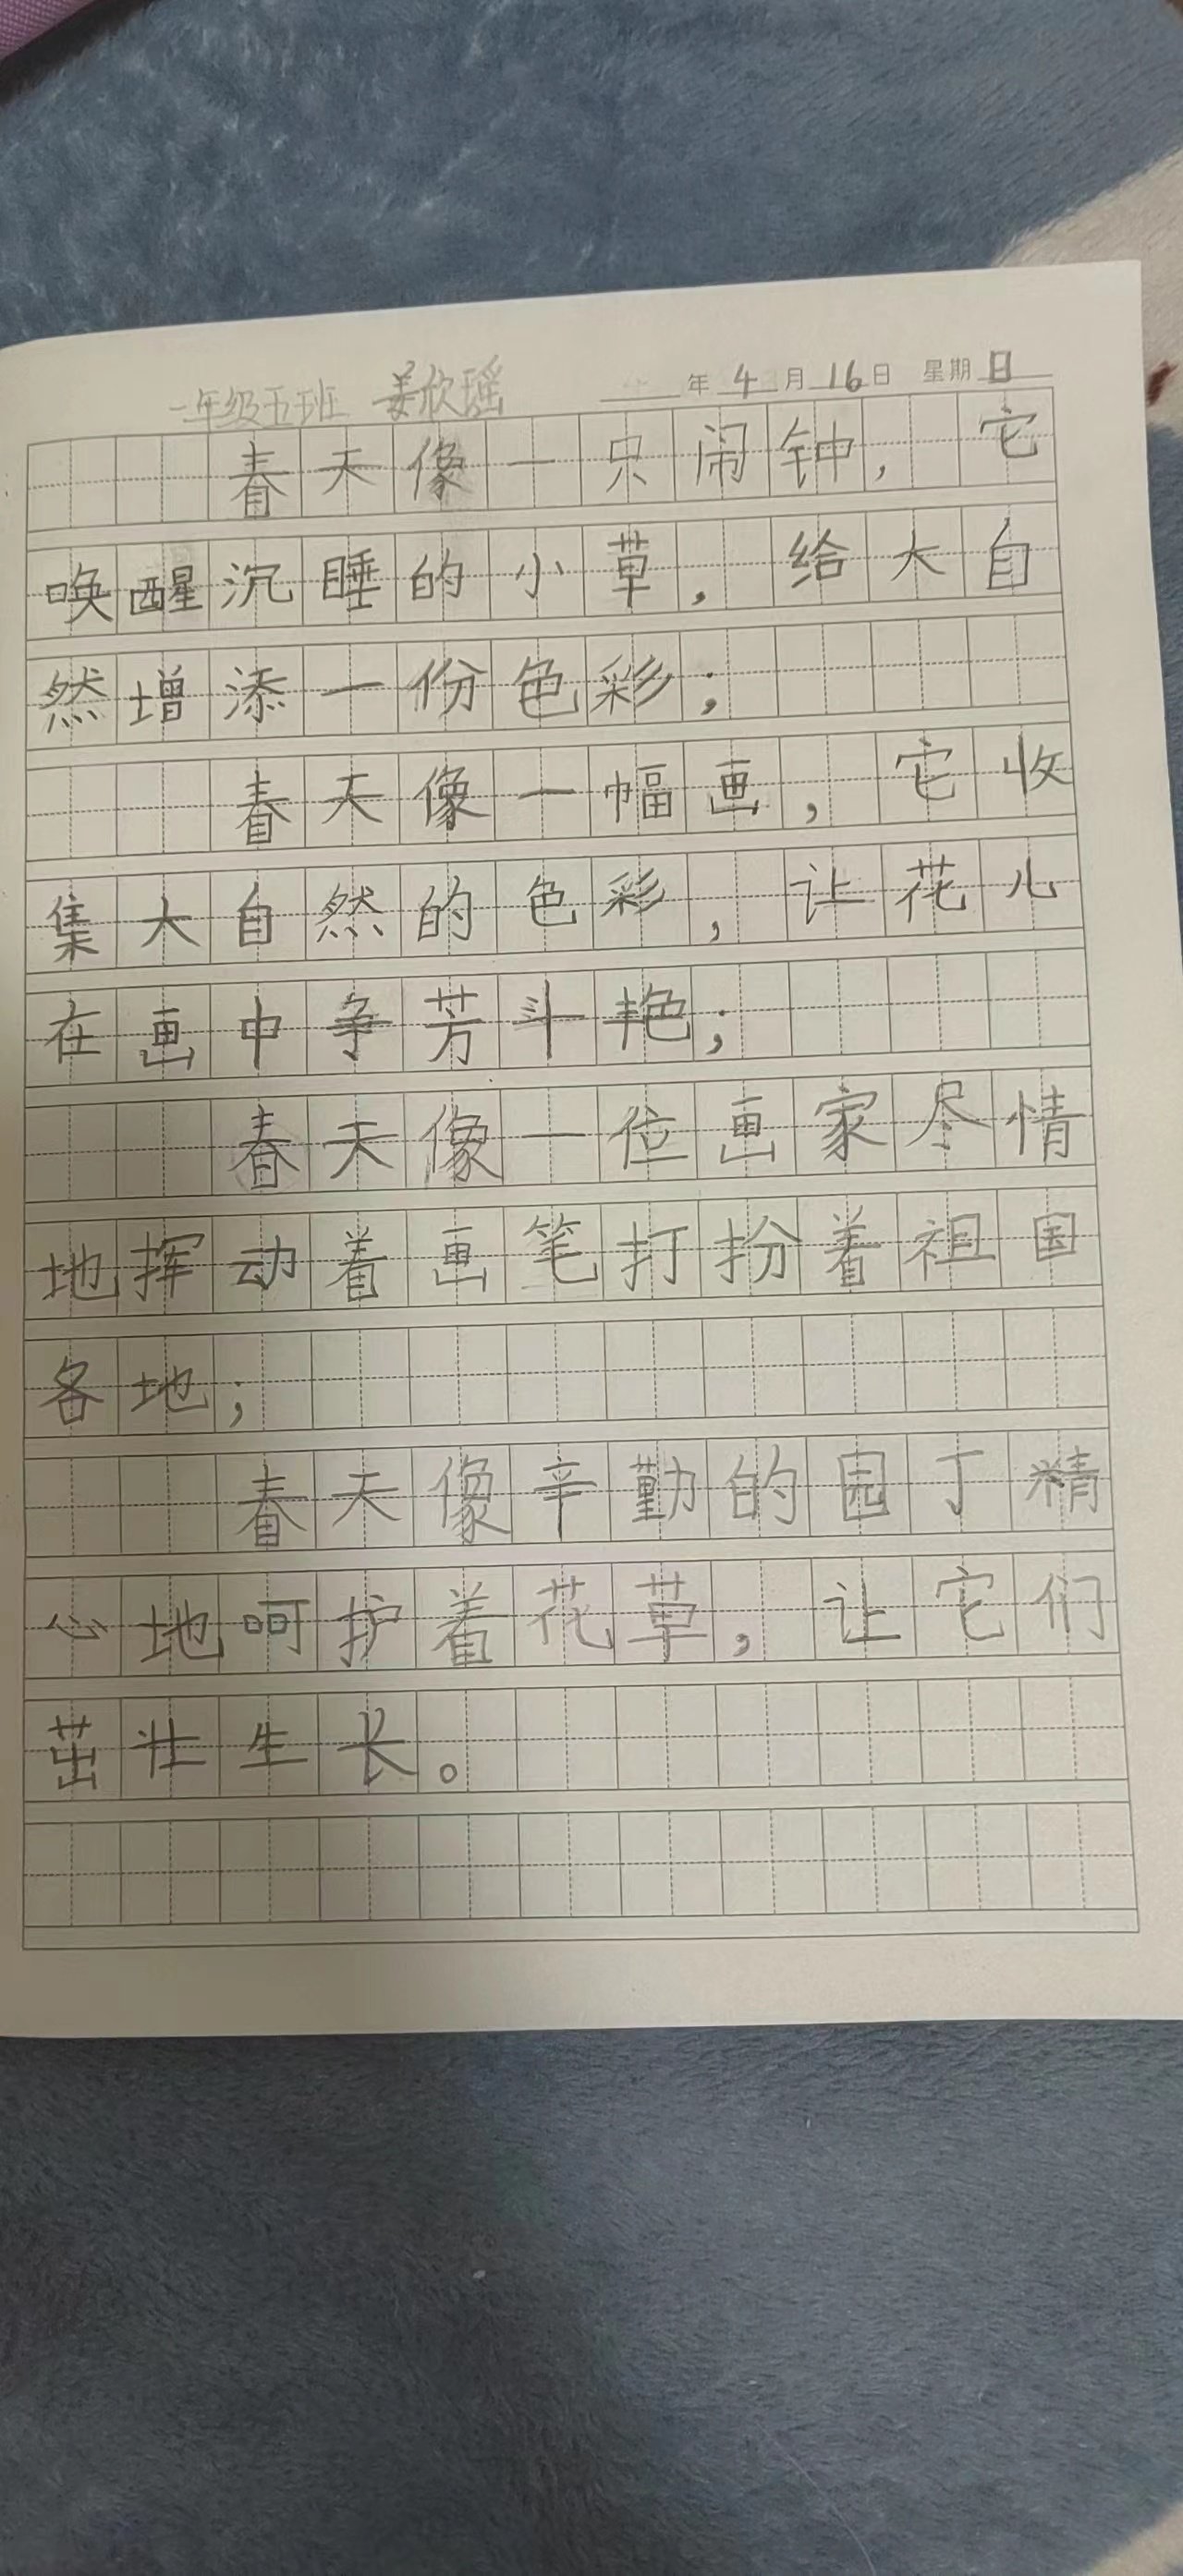 一年级五班 姜欣瑶 年4月16日 星期日
春天像一只闹钟，它
唤醒沉睡的小草，给大自
然增添一份色彩；
春天像一幅画，它收
集大自然的色彩，让花儿
在画中争芳斗艳；
春天像一位画家尽情
地挥动着画笔打扮着祖国
各地；
春天像辛勤的园丁精
心地呵护着花草，让它们
茁壮生长。